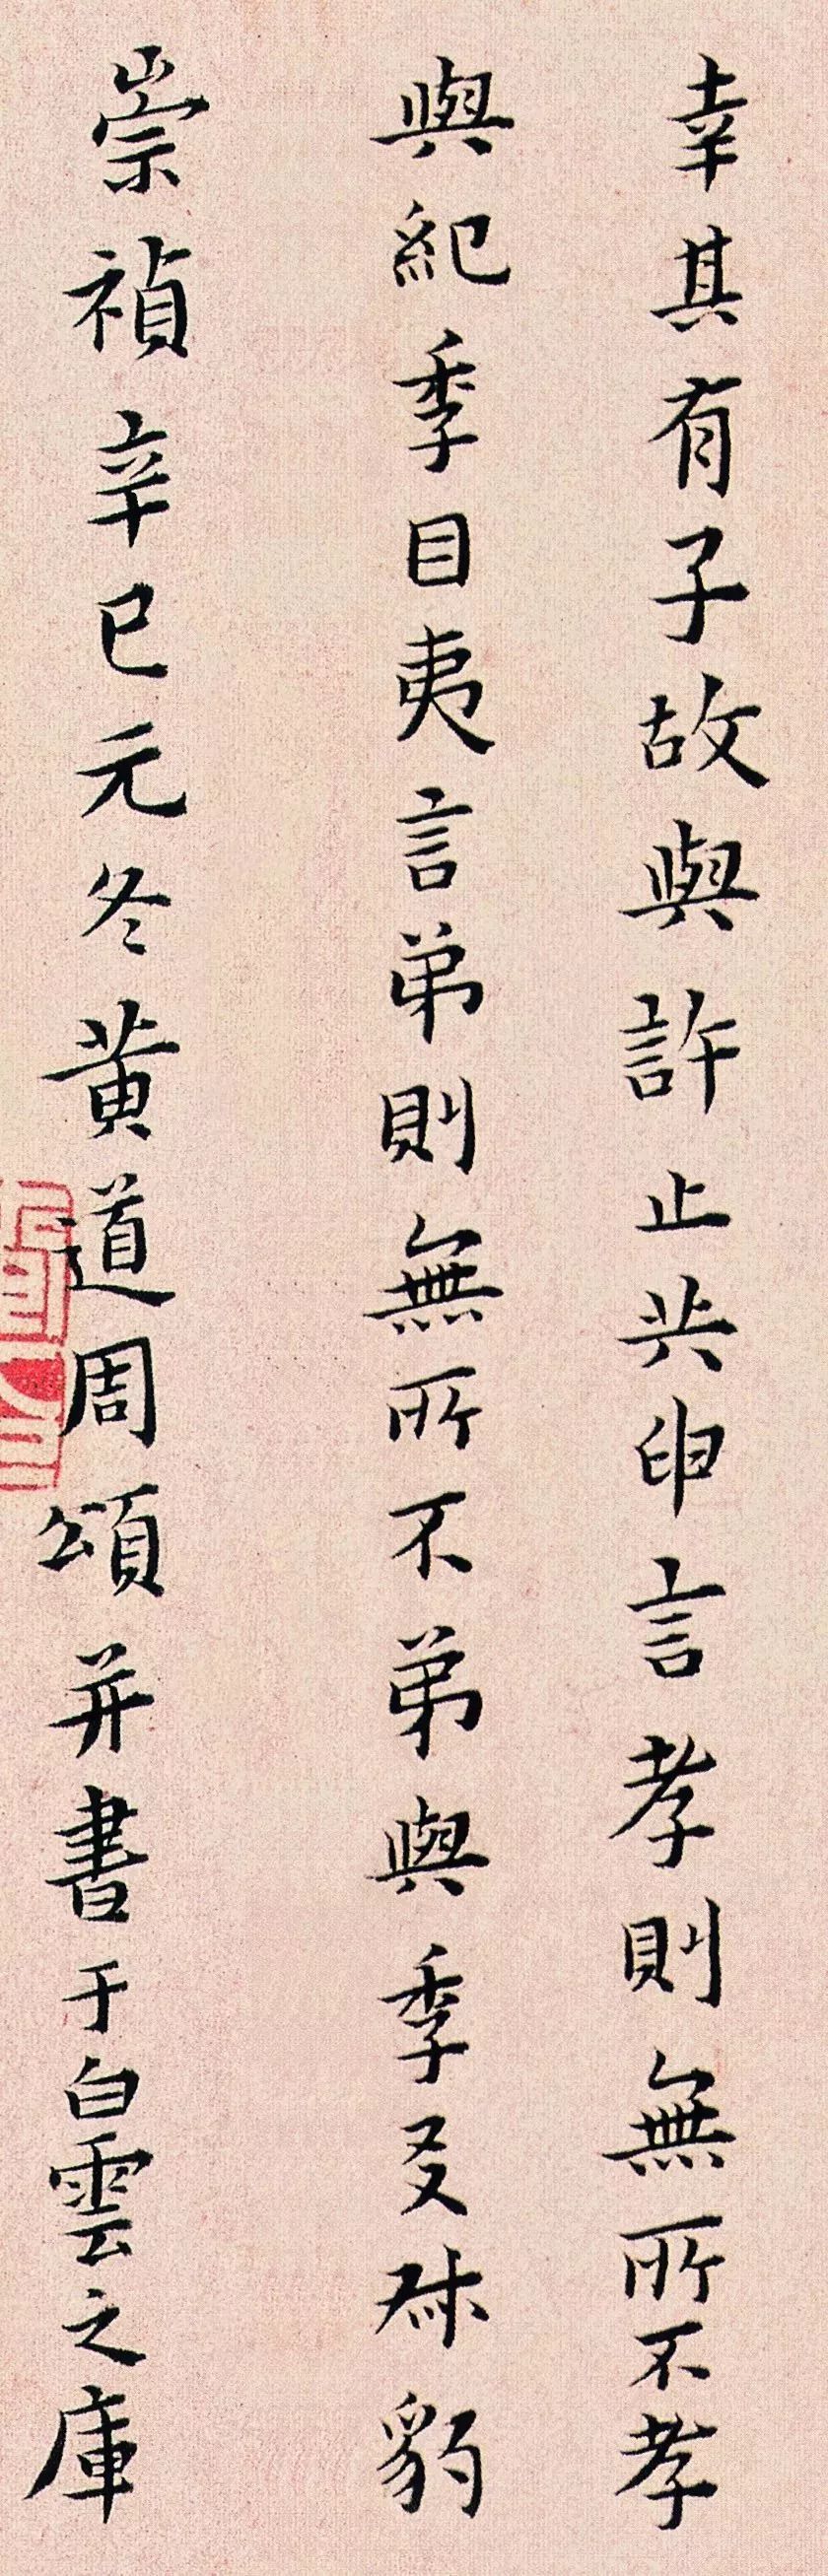 幸其有子故與許止共申言孝則無所不孝
與紀季目夷言弟則無所不弟與季㕛叔豹
崇禎辛巳元冬黃道周頌并書于白雲之庫